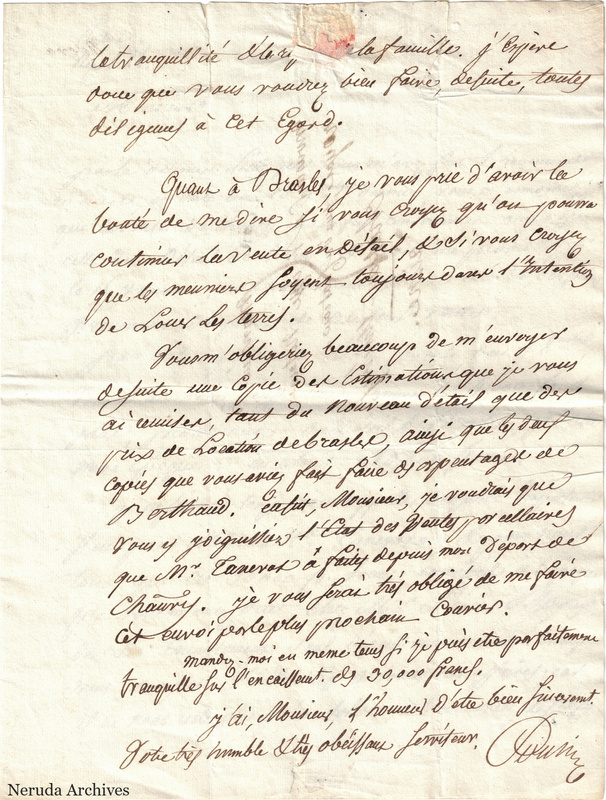 la tranquillité & le la famille. j'Espère
donc que vous voudrez bien faire, de suite, toutes
diligences à cet Egard.
Quant à Brasles, je vous prie d'avoir la
bonté de me dire si vous croyez qu'on pourra
continuer la vente en détail, & si vous croyez
que les meuniers soyent toujours dans l'Intention
de Louer les terres.
Vous m'obligeriez beaucoup de m'envoyer
de suite une copie des Estimations que je vous
ai remises, tant du Nouveau détail que des
prix de Location de brasles, ainsi que les deux
copies que vous aviés fait faire des arpentages de
Berthaud. enfin, Monsieur, je voudrais que
vous y joignissiez l'Etat des Ventes parcellaires
que Mr. Taneret à faites depuis mon départ de
Chaûrÿ. je vous serai très obligé de me faire
cet envoi par le plus prochain Courier.
mandez-moi en meme tems si je puis etre parfaitement
tranquille sur l'encaissemt. des 30,000 francs.
j'ai, Monsieur, l'honneur d'etre bien sincerement.
Votre très humble & très obéissant serviteur.
Neruda Archives